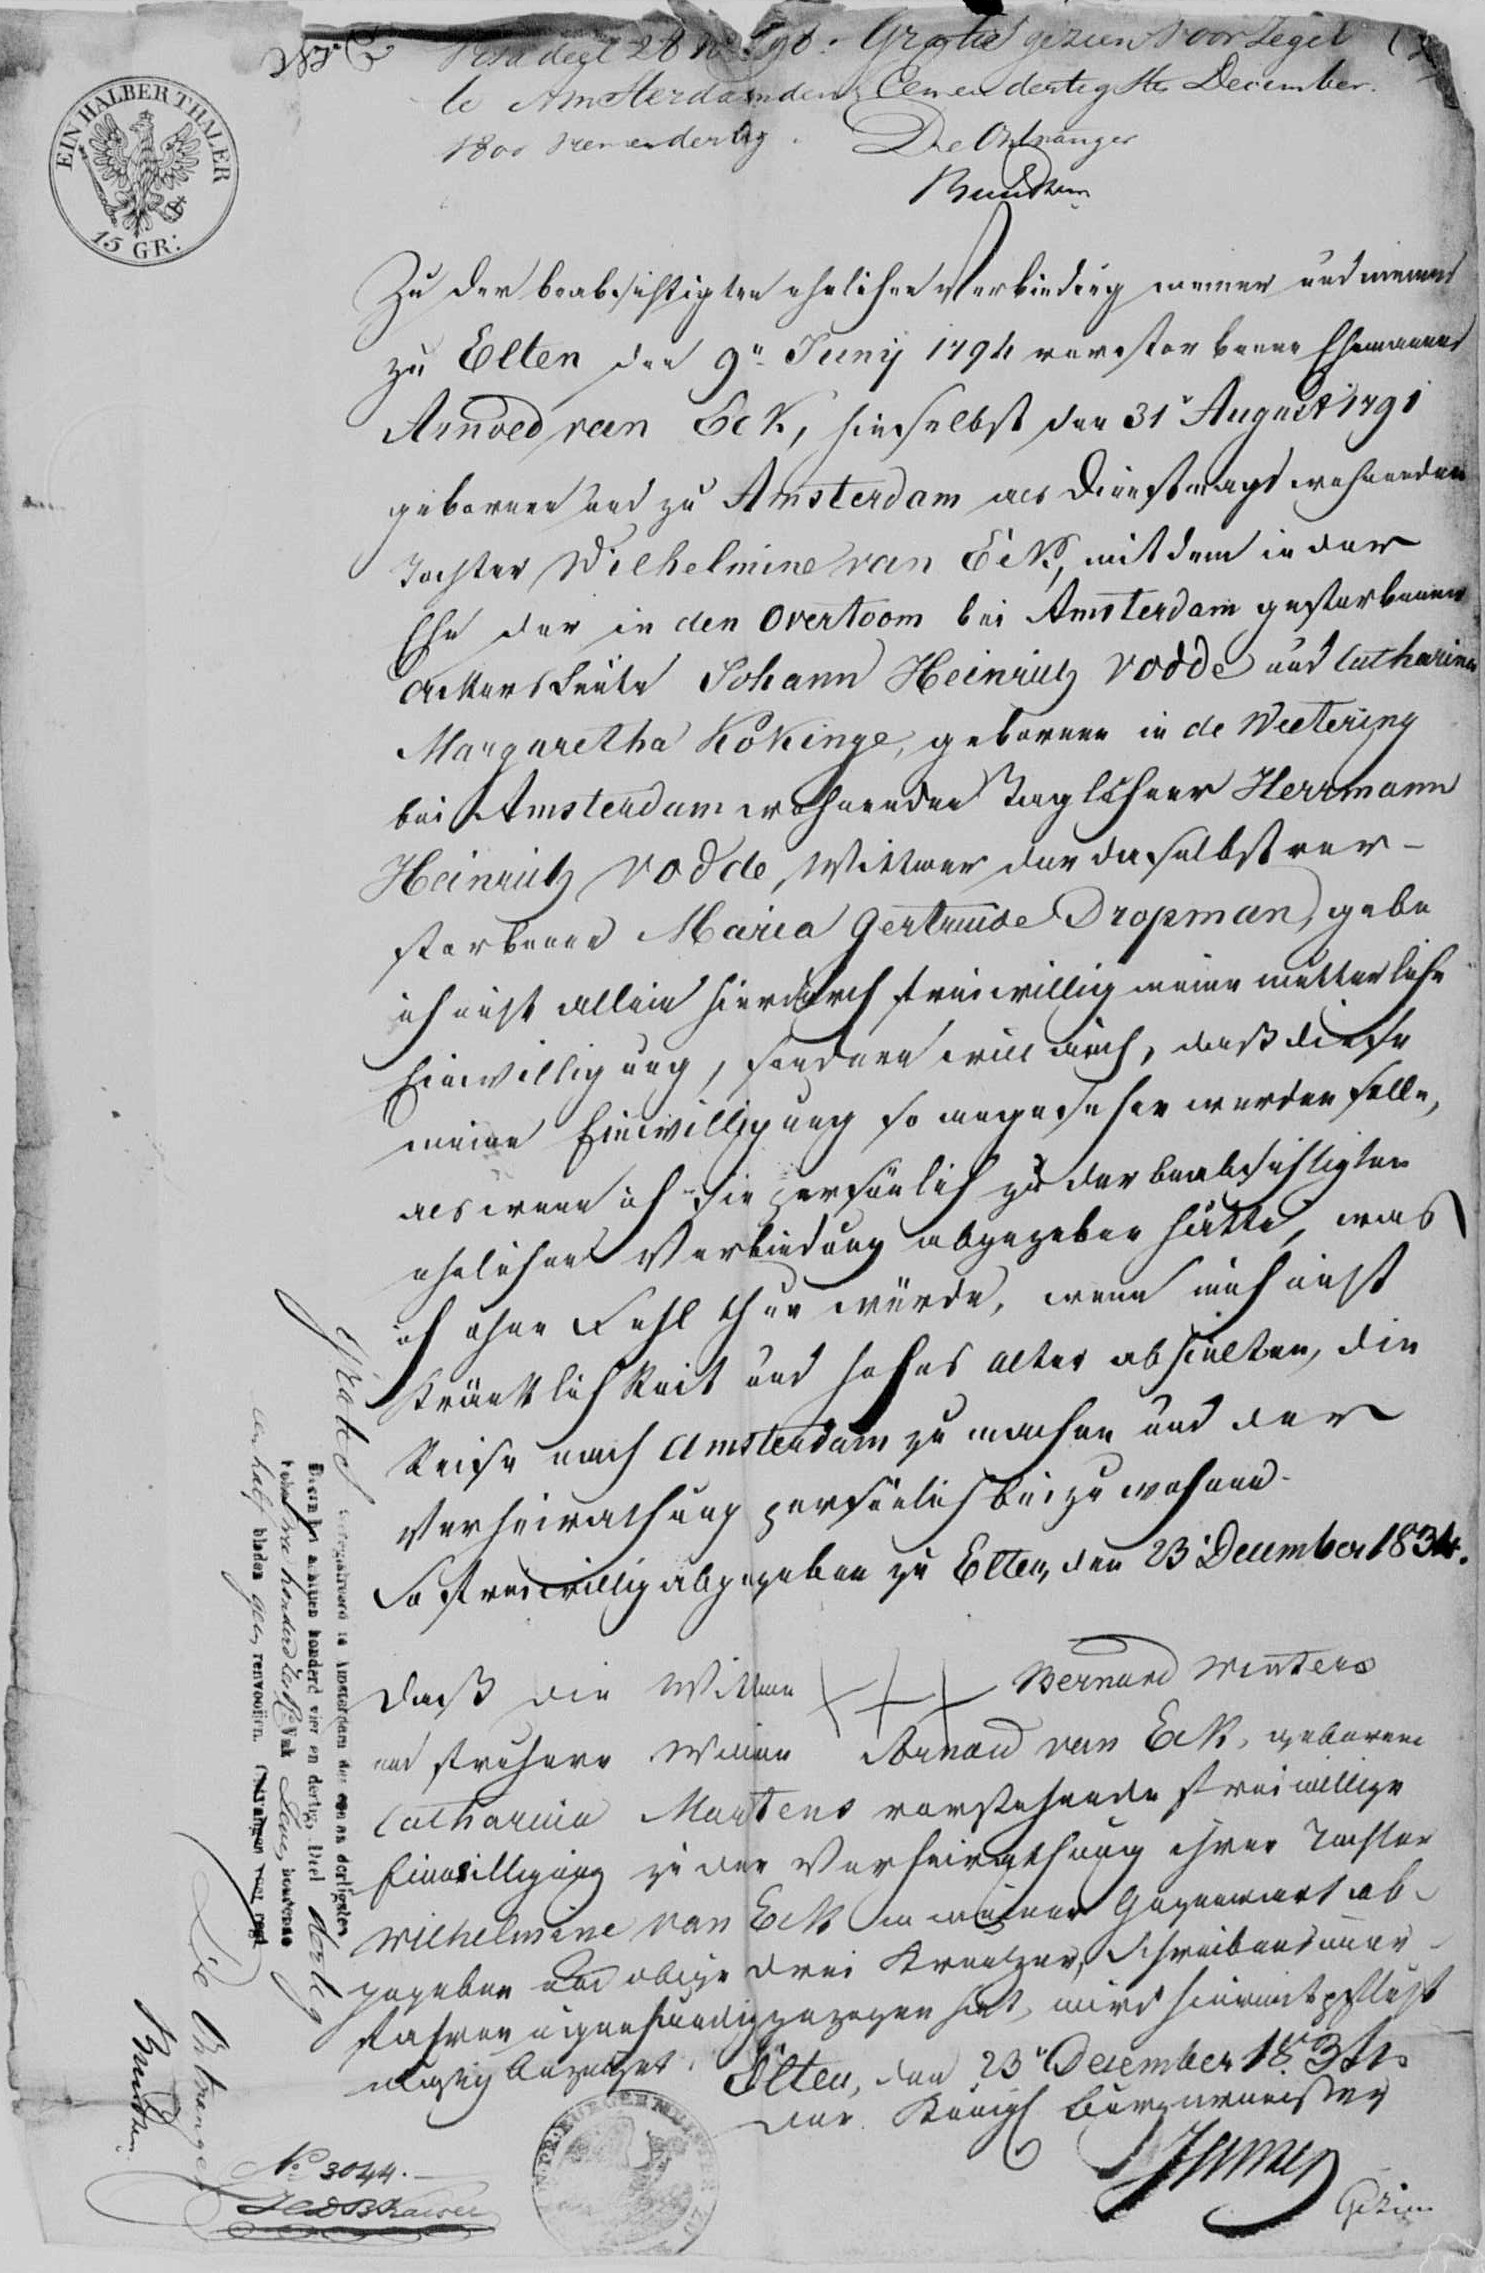 EIN HALBER THALER
15 GR:
deel 28 Gratis gezien voor zegel
te Amsterdam den Eenendertigste December
1800 vierendertig. De Ontvanger
Zu der beabsichtigten ehelichen Verbindung meiner und meines
zu Elten den 9n Junij 1794 verstorbenen Ehemannes
Arnold van Eck, hierselbst den 31n August 1791
gebornen und zu Amsterdam als Dienstmagd wohnenden
Tochter Wilhelmine van Eck, mit dem in der
Ehe der in den Overtoom bei Amsterdam gestorbenen
Ackersleute Johann Heinrich Vodde und Catharina
Margaretha Kokinge, gebornen in de Weetering
bei Amsterdam wohnenden Taglöhner Herrmann
Heinrich Vodde, Wittwer der daselbst ver-
storbenen Maria Gertruide Dropman, gebe
ich nicht allein hierdurch freiwillig meine mütterliche
Einwilligung, sondern will auch, daß diese
meine Einwilligung so angesehen werden solle,
als wenn ich sie persönlich zu der beabsichtigten
ehelichen Verbindung abgegeben hätte, was
ich ohne Fehl thun würde, wenn mich nicht
Kränklichkeit und hohes Alter abhielten, die
Reise nach Amsterdam zu machen und der
Verheirathung persönlich beizuwohnen.
So freiwillig abgegeben zu Elten, den 23 December 1834.
Daß die Wittwe +++ Bernard Winters
und frühere Wittwe Arnold van Eck, geborene
Catharina Martens vorstehende freiwillige
Einwilligung zu der Verheirathung ihrer Tochter
Wilhelmine van Eck in meiner Gegenwart ab-
gegeben und obige drei Kreutzer, Schreibens uner-
fahren eigenhändig gezogen hat, wird hiermit pflicht
mäßig bezeuget.
Elten, den 23n December 1834.
Der Königl Bürgermeister
Gezien
No 3044.
Geregistreerd te Amsterdam den een en dertigsten
December achttien honderd vier en dertig, Deel dertig
folio honderd Vak
een half bladen geen renvooijen. Ontvangen voor regt
De Ontvanger